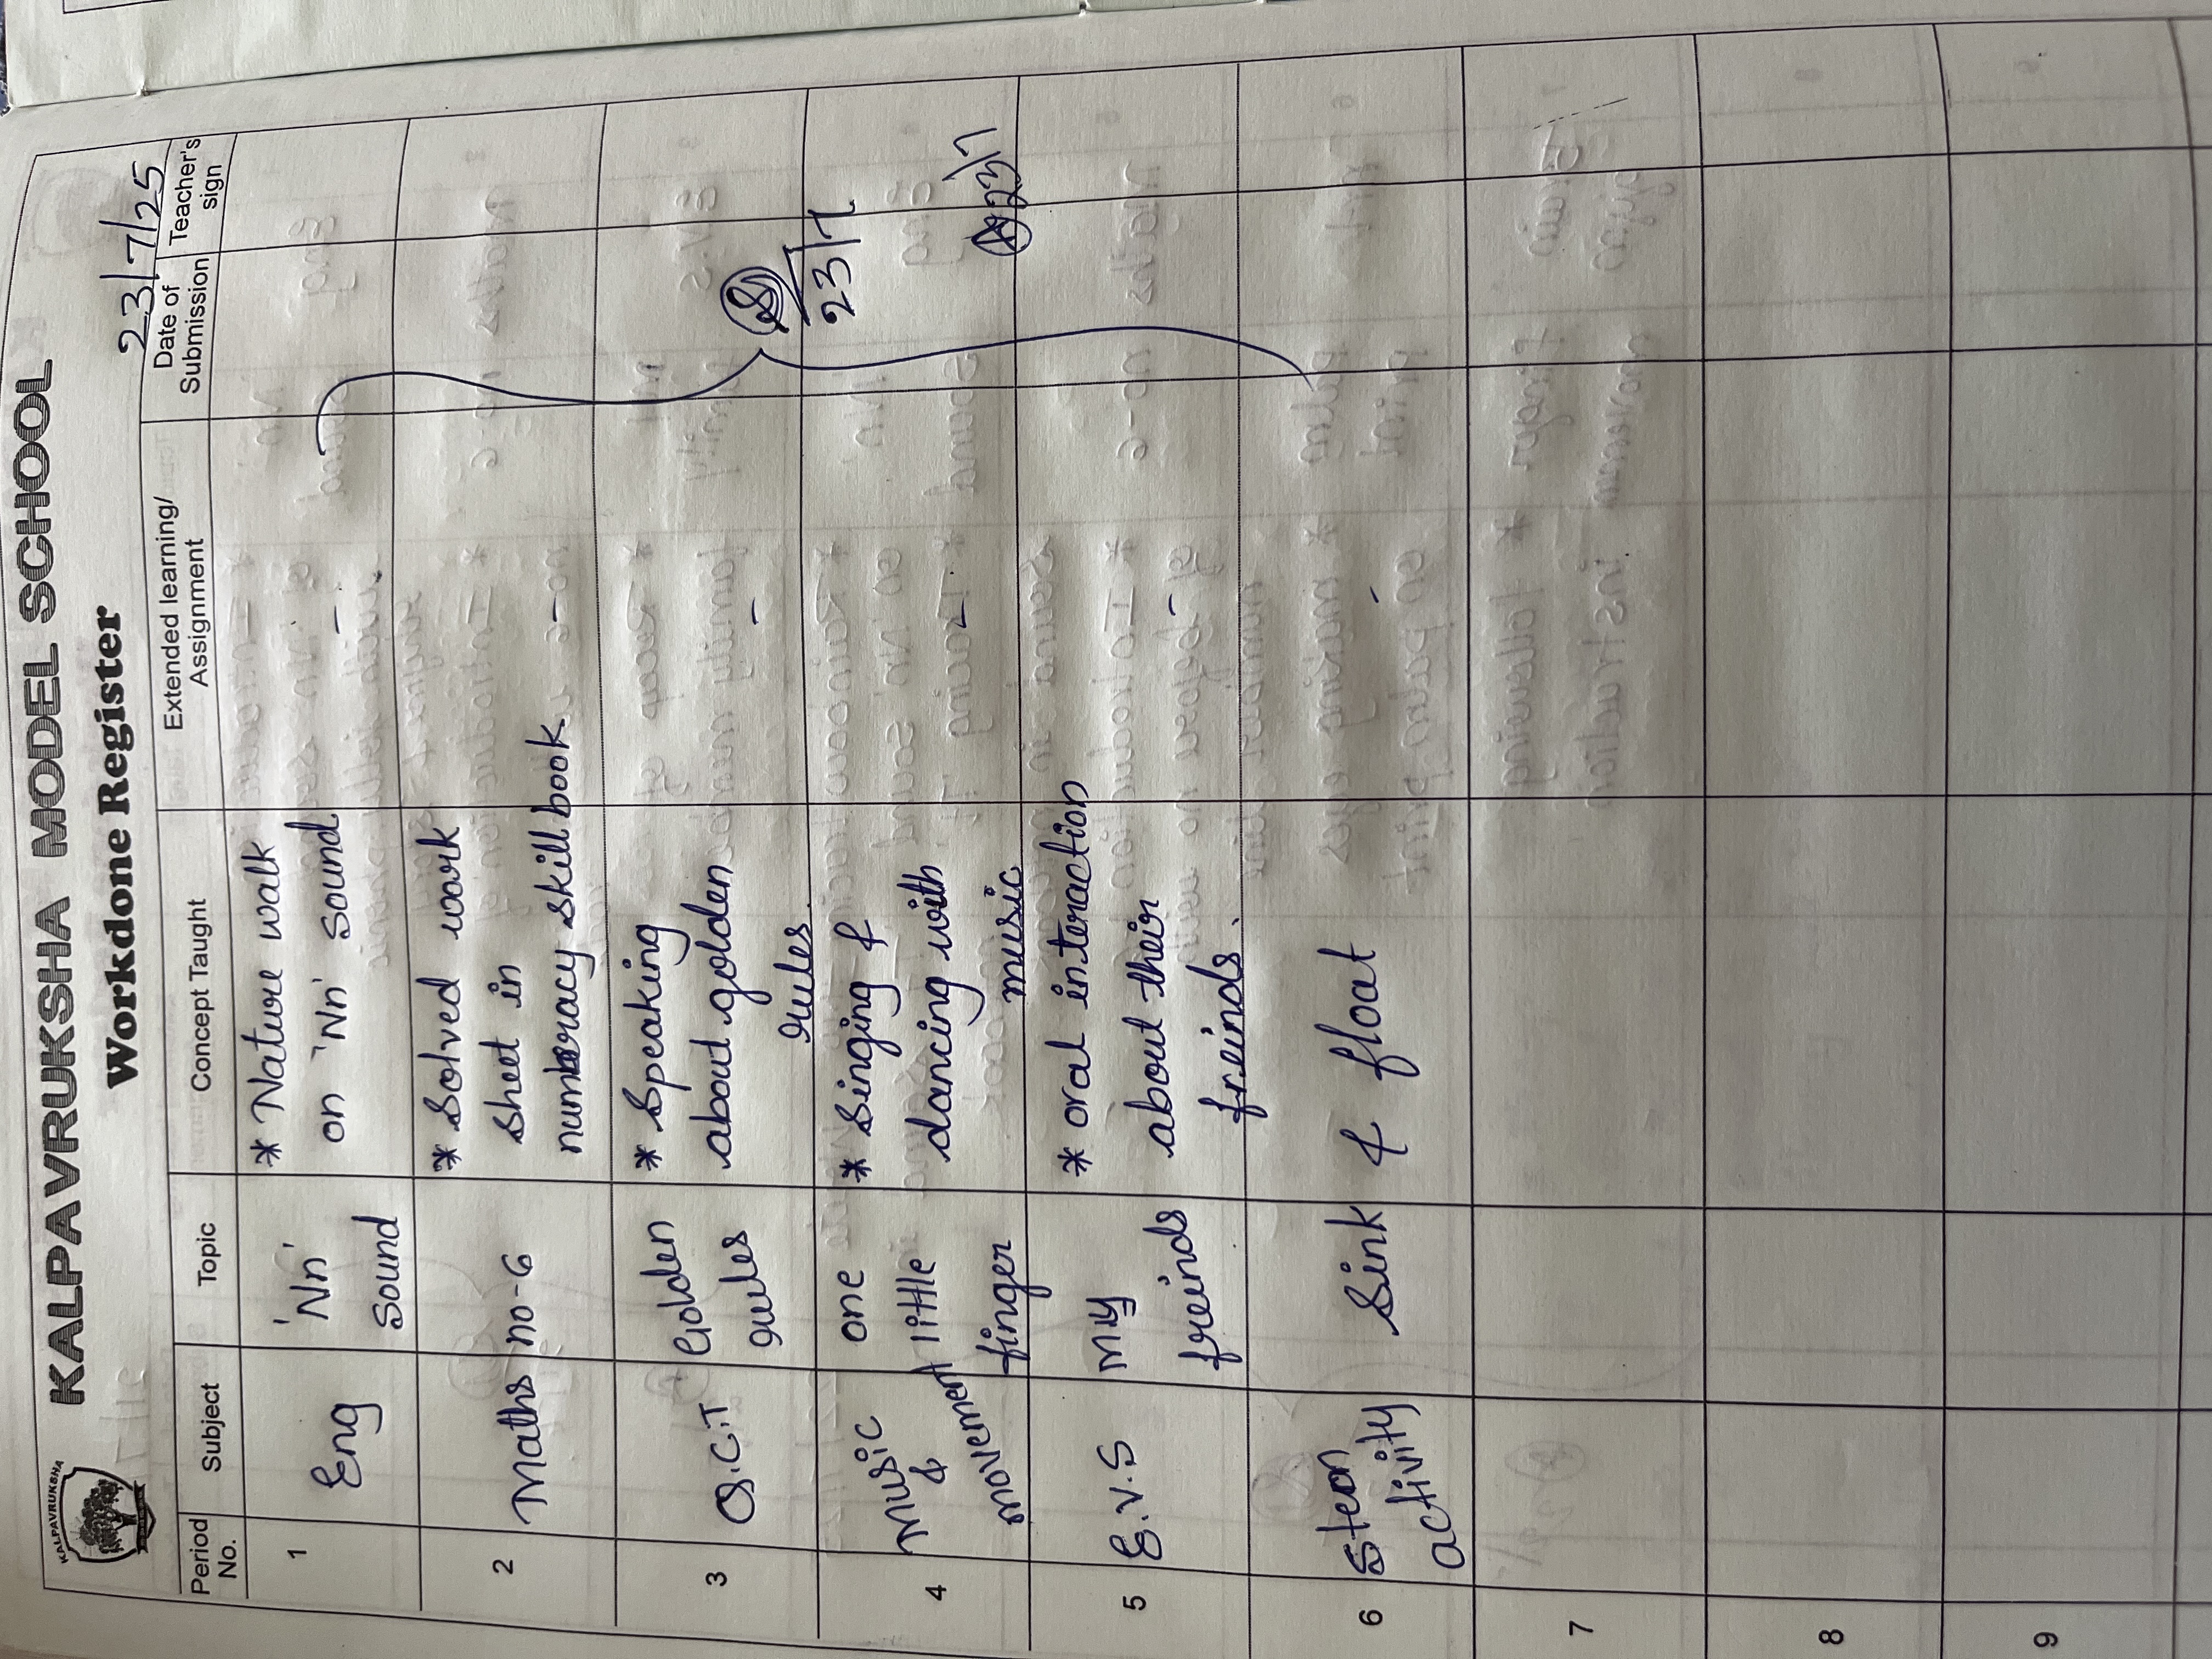 KALPAVRUKSHA
KALPAVRUKSHA MODEL SCHOOL
Workdone Register
23/7/25
Period No. Subject Topic Concept Taught Extended learning/ Assignment Date of Submission Teacher's sign
1 Eng 'Nn' sound * Nature walk on 'Nn' sound -
2 Maths no-6 * Solved work sheet in numeracy skill book -
3 Golden rules * Speaking about golden rules. -
23/7
4 Music & movement one little finger * Singing & dancing with music -
23/7
5 E.V.S my freinds * oral interaction about their freinds. -
6 activity Sink & float -
7
8
9